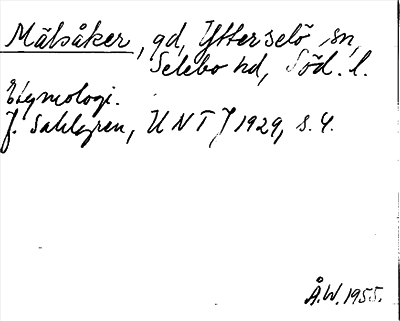 Mälsåker, gd, Ytterselö sn,
Selebo hd, Söd. l.
Etymologi.
J. Sahlgren, UNT J 1929, s. 4.
Å.W. 1955.